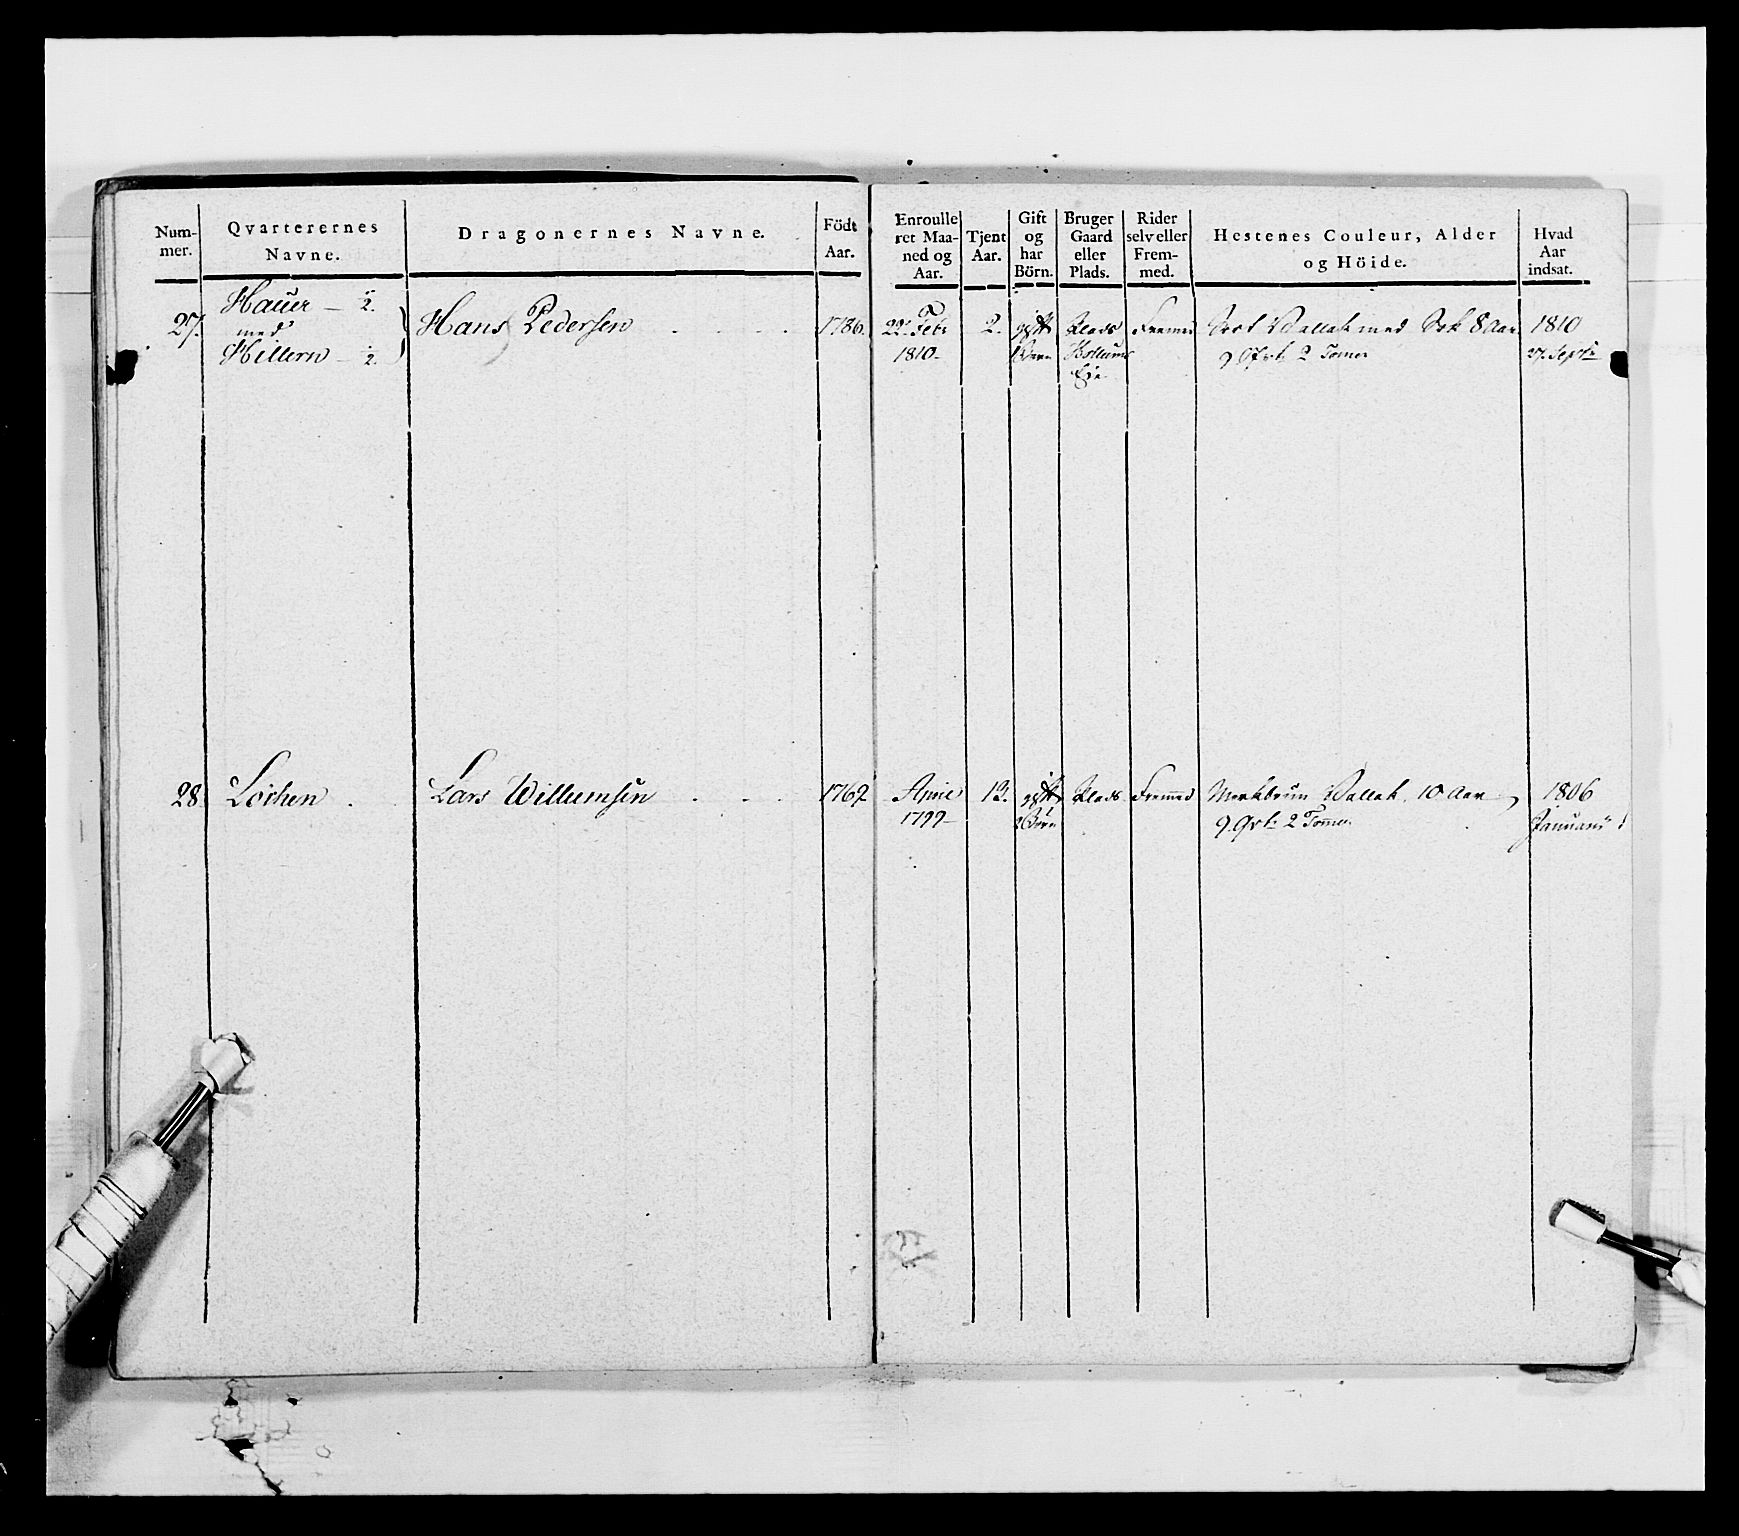 Num-
mer.
Qvarterernes
Navne.
Dragonernes Navne.
Födt
Aar.
Enroulle
ret Maa-
ned og
Aar.
Tjent
Aar.
Gift
og
har
Börn.
Bruger
Gaard
eller
Plads.
Rider
selv eller
Frem-
med.
Hestenes Couleur, Alder
og Höide.
Hvad
Aar
indsat.
27.
Hauer — ½.
med
Hillern — ½.
Hans Pedersen
1786.
22. Febr
1810
2.
gift
1 Børn
Plads
Eje
Fremed
Sort Vallak med Sok 8 Aar
9 Qvrt 2 Tomer
1810
27. Septr
28
Löchen
Lars Willumsen
1769
April
1799
13.
gift
2 Börn
Plads
Fremed
Mörkbrun Vallak 10 Aar
9 Qvrt 2 Tommer
1806
Januari